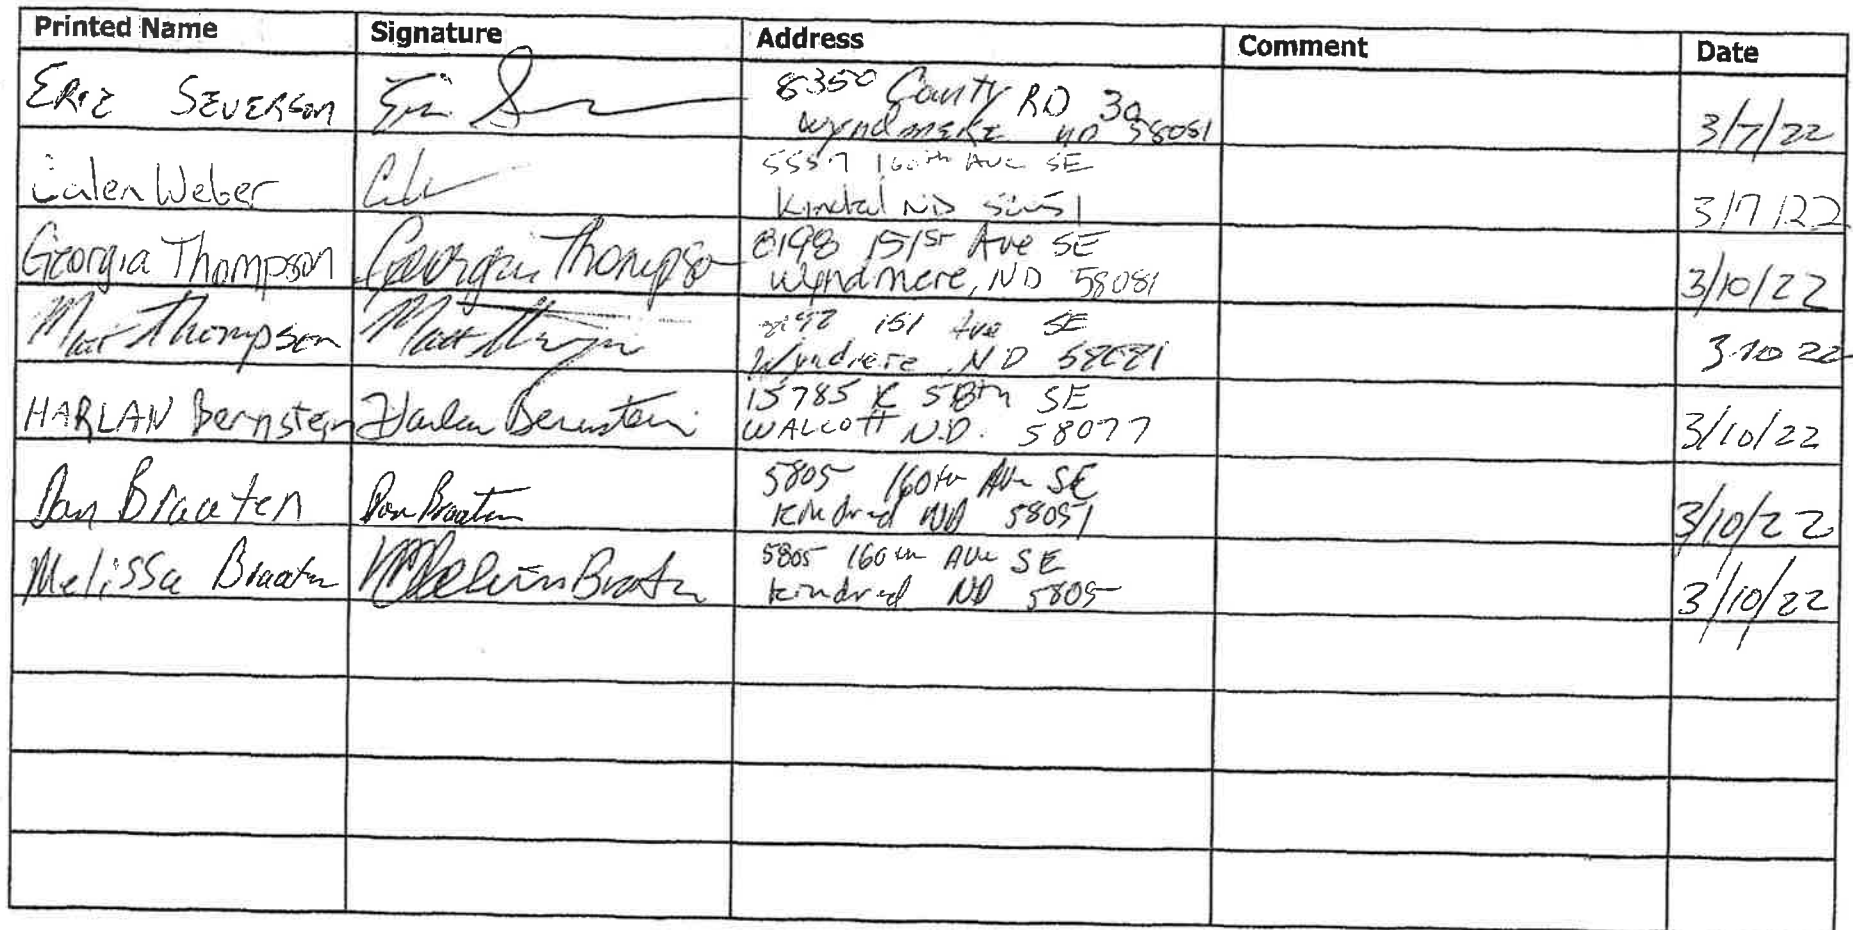 Printed Name Signature Address Comment Date
ERIC SEVERSON Eric S 8350 County RD 30
Wyndmere ND 58081 3/7/22
Calen Weber 160th Ave SE
ND 3/7/22
Georgia Thompson Georgia Thompson 8198 151st Ave SE
Wyndmere, ND 58081 3/10/22
Matt Thompson Matt 151 Ave SE
Wyndmere ND 58081 3 10 22
HARLAN Bernstein Harlan Bernstein 15785 58th SE
WALCOTT N.D. 58077 3/10/22
Dan Braaten Dan Braaten 5805 160th Ave SE
Kindred ND 58051 3/10/22
Melissa Braaten Melissa Braaten 5805 160th Ave SE
Kindred ND 5805 3/10/22